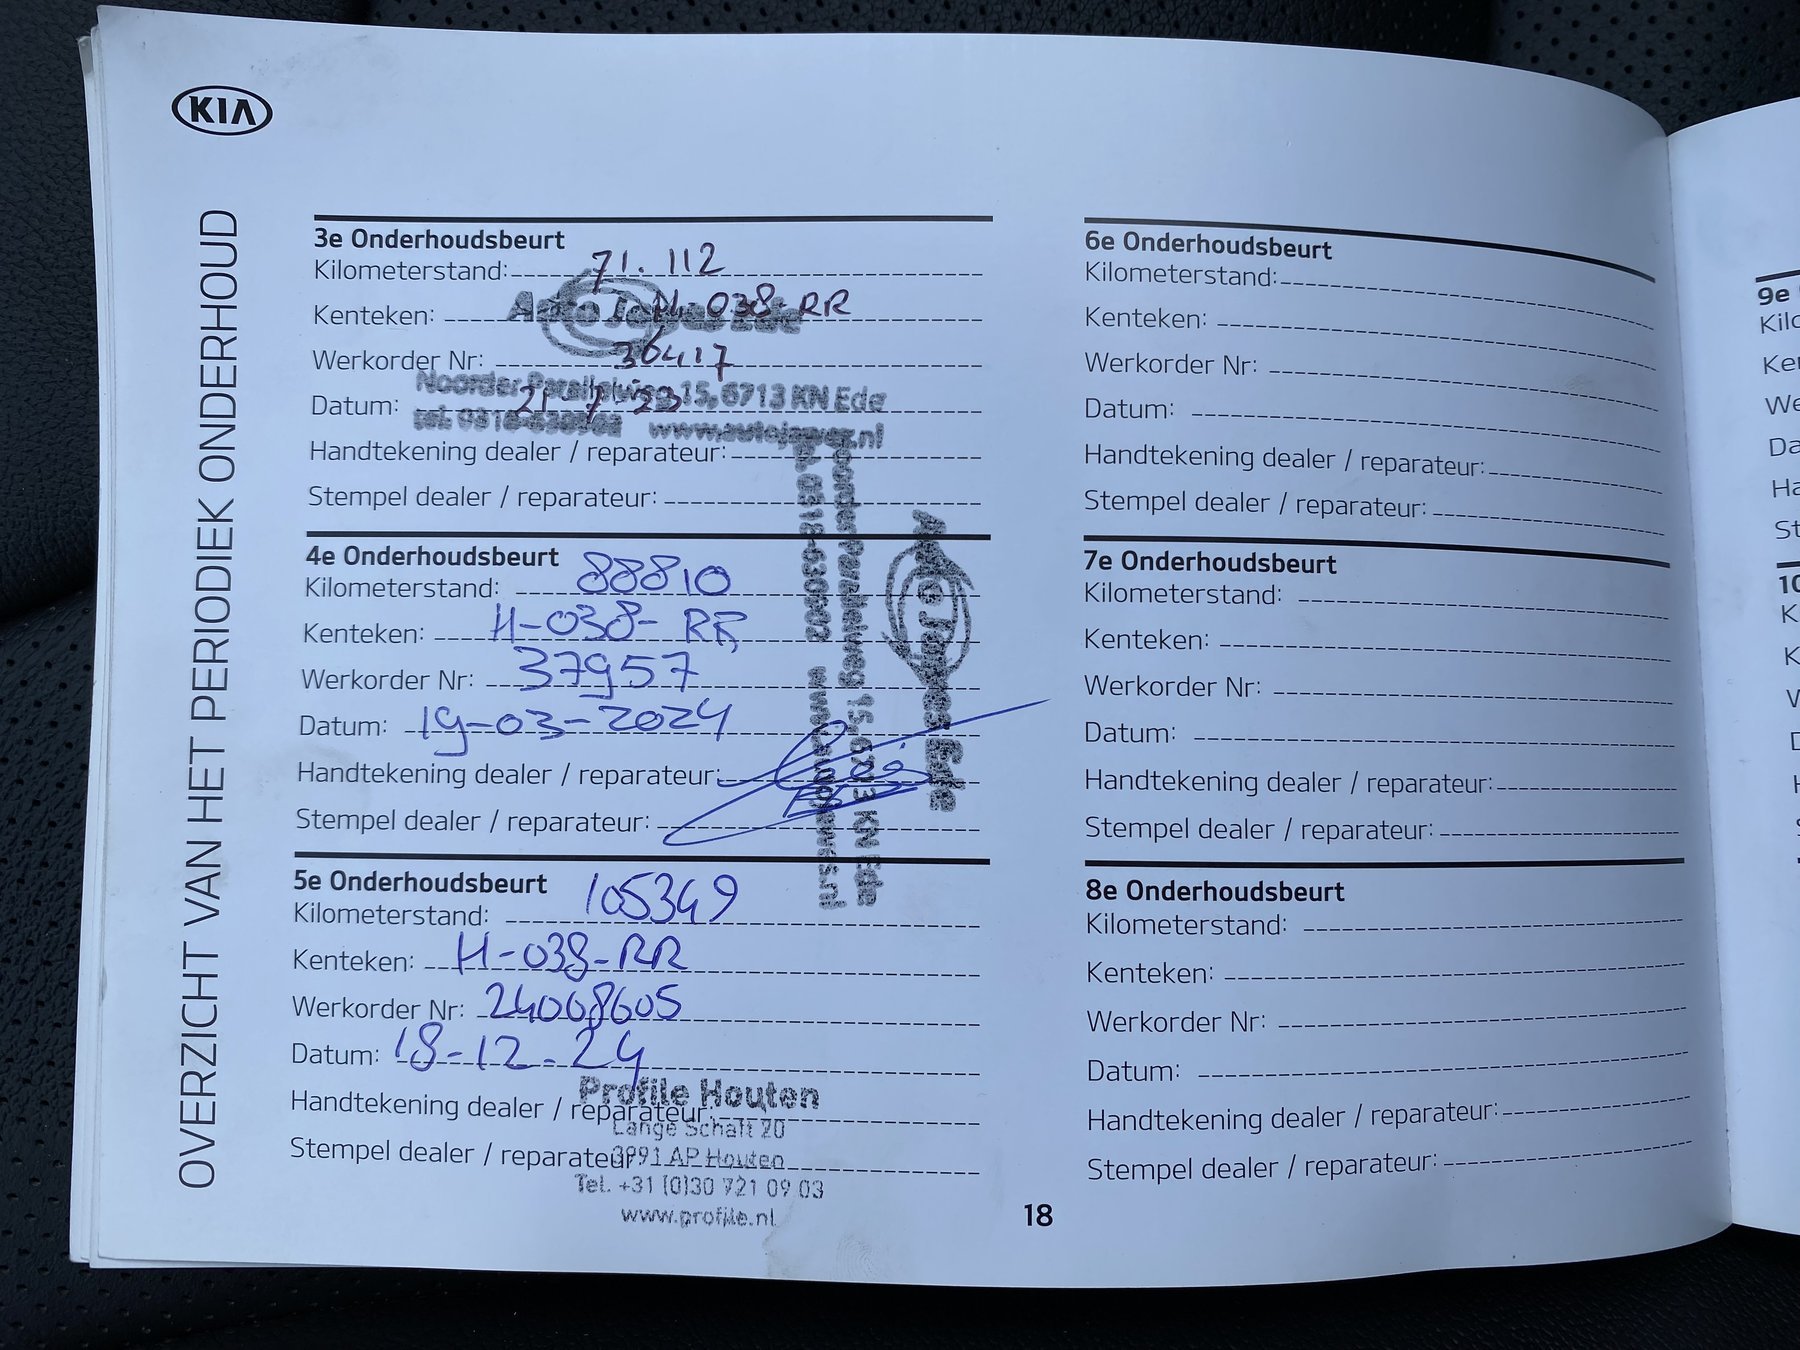 KIA
OVERZICHT VAN HET PERIODIEK ONDERHOUD
3e Onderhoudsbeurt
Kilometerstand: 71.112
Kenteken: H-038-RR
Auto Jaques Ede
Werkorder Nr: 36417
Noorder Parallelweg 15, 6713 KN Ede
Datum: 21 7 23
tel. 0318-630902 www.autojaques.nl
Handtekening dealer / reparateur:
Stempel dealer / reparateur:
4e Onderhoudsbeurt
Kilometerstand: 88810
Kenteken: H-038-RR
Werkorder Nr: 37957
Datum: 19-03-2024
Handtekening dealer / reparateur:
Stempel dealer / reparateur:
Auto Jaques Ede
Noorder Parallelweg 15, 6713 KN Ede
tel. 0318-630902 www.autojaques.nl
5e Onderhoudsbeurt
Kilometerstand: 105349
Kenteken: H-038-RR
Werkorder Nr: 24008605
Datum: 18-12-24
Profile Houten
Handtekening dealer / reparateur:
Lange Schaft 20
Stempel dealer / reparateur:
3991 AP Houten
Tel. +31 (0)30 721 09 03
www.profile.nl
6e Onderhoudsbeurt
Kilometerstand:
Kenteken:
Werkorder Nr:
Datum:
Handtekening dealer / reparateur:
Stempel dealer / reparateur:
7e Onderhoudsbeurt
Kilometerstand:
Kenteken:
Werkorder Nr:
Datum:
Handtekening dealer / reparateur:
Stempel dealer / reparateur:
8e Onderhoudsbeurt
Kilometerstand:
Kenteken:
Werkorder Nr:
Datum:
Handtekening dealer / reparateur:
Stempel dealer / reparateur:
18
9e